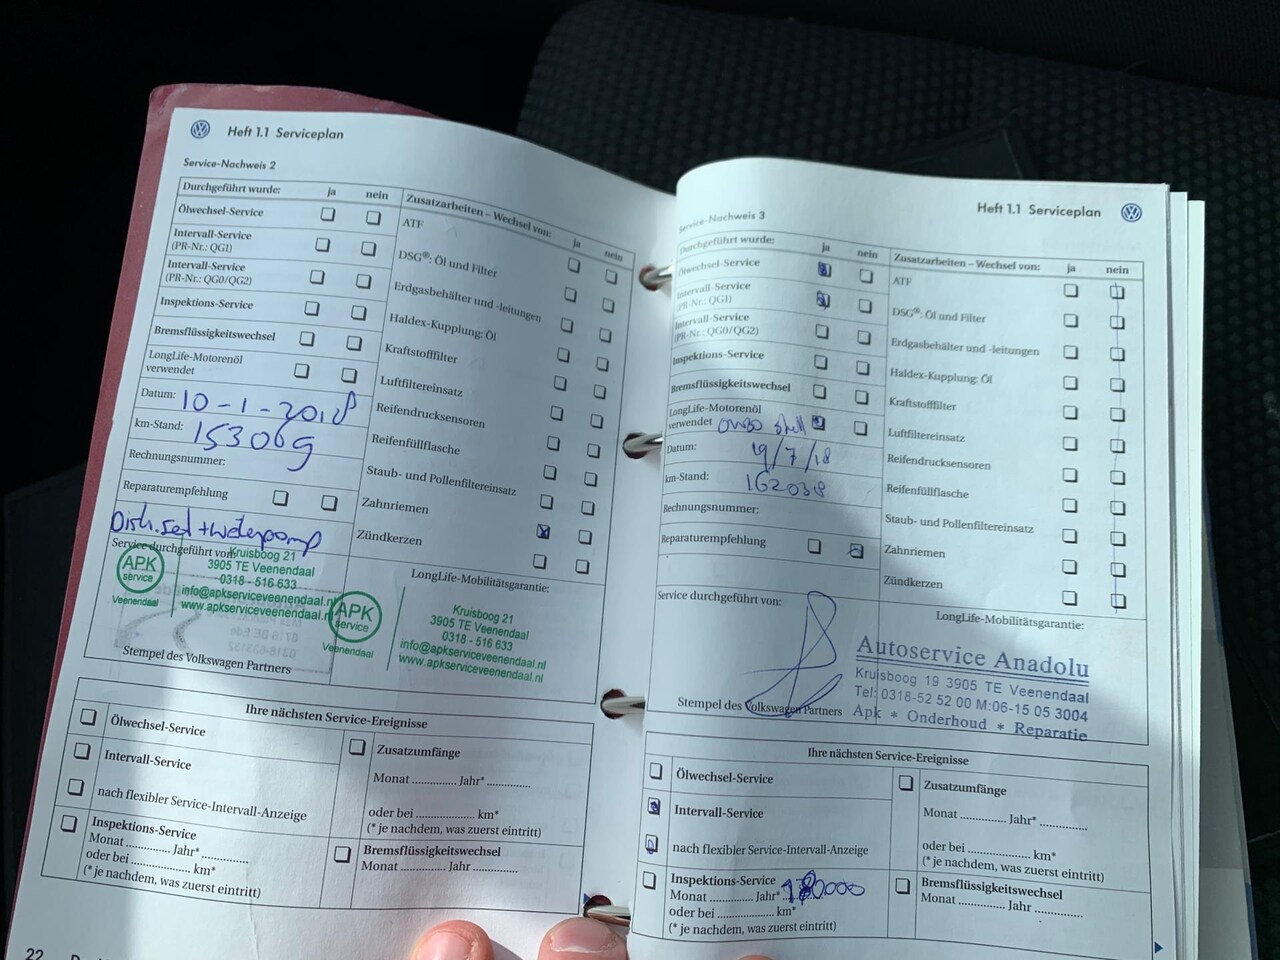 Heft 1.1 Serviceplan
Service-Nachweis 2
Durchgeführt wurde: ja nein
Ölwechsel-Service
Intervall-Service
(PR-Nr.: QG1)
Intervall-Service
(PR-Nr.: QG0/QG2)
Inspektions-Service
Bremsflüssigkeitswechsel
LongLife-Motorenöl
verwendet
Datum: 10-1-2018
km-Stand: 153069
Rechnungsnummer:
Reparaturempfehlung
Zusatzarbeiten – Wechsel von: ja nein
ATF
DSG®: Öl und Filter
Erdgasbehälter und -leitungen
Haldex-Kupplung: Öl
Kraftstofffilter
Luftfiltereinsatz
Reifendrucksensoren
Reifenfüllflasche
Staub- und Pollenfiltereinsatz
Zahnriemen
Zündkerzen
Service durchgeführt von:
APK
service
Veenendaal
Kruisboog 21
3905 TE Veenendaal
0318 - 516 633
info@apkserviceveenendaal.nl
www.apkserviceveenendaal.nl
Stempel des Volkswagen Partners
LongLife-Mobilitätsgarantie:
APK
service
Veenendaal
Kruisboog 21
3905 TE Veenendaal
0318 - 516 633
info@apkserviceveenendaal.nl
www.apkserviceveenendaal.nl
Ihre nächsten Service-Ereignisse
Ölwechsel-Service
Intervall-Service
nach flexibler Service-Intervall-Anzeige
Inspektions-Service
Monat .............. Jahr* ..............
oder bei .................... km*
(* je nachdem, was zuerst eintritt)
Zusatzumfänge
Monat .............. Jahr* ..............
oder bei ........................ km*
(* je nachdem, was zuerst eintritt)
Bremsflüssigkeitswechsel
Monat .............. Jahr ..............
22
Heft 1.1 Serviceplan
Service-Nachweis 3
Durchgeführt wurde: ja nein
Ölwechsel-Service
Intervall-Service
(PR-Nr.: QG1)
Intervall-Service
(PR-Nr.: QG0/QG2)
Inspektions-Service
Bremsflüssigkeitswechsel
LongLife-Motorenöl
verwendet shell
Datum: 19/7/18
km-Stand: 162038
Rechnungsnummer:
Reparaturempfehlung
Zusatzarbeiten – Wechsel von: ja nein
ATF
DSG®: Öl und Filter
Erdgasbehälter und -leitungen
Haldex-Kupplung: Öl
Kraftstofffilter
Luftfiltereinsatz
Reifendrucksensoren
Reifenfüllflasche
Staub- und Pollenfiltereinsatz
Zahnriemen
Zündkerzen
Service durchgeführt von:
Stempel des Volkswagen Partners
LongLife-Mobilitätsgarantie:
Autoservice Anadolu
Kruisboog 19 3905 TE Veenendaal
Tel: 0318-52 52 00 M:06-15 05 3004
Apk * Onderhoud * Reparatie
Ihre nächsten Service-Ereignisse
Ölwechsel-Service
Intervall-Service
nach flexibler Service-Intervall-Anzeige
Inspektions-Service
Monat .............. Jahr* 180000
oder bei .................... km*
(* je nachdem, was zuerst eintritt)
Zusatzumfänge
Monat .............. Jahr* ..............
oder bei ........................ km*
(* je nachdem, was zuerst eintritt)
Bremsflüssigkeitswechsel
Monat .............. Jahr ..............